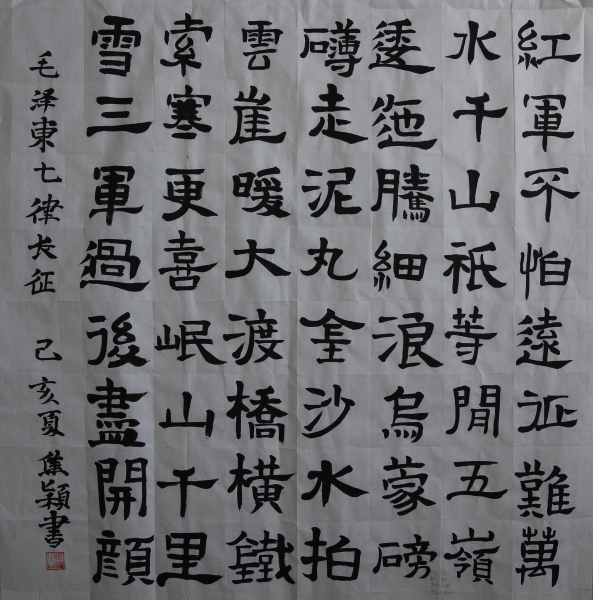 紅軍不怕遠征難萬
水千山祇等閒五嶺
逶迤騰細浪烏蒙磅
礴走泥丸金沙水拍
雲崖暖大渡橋橫鐵
索寒更喜岷山千里
雪三軍過後盡開顏
毛泽東七律长征 己亥夏焦穎書